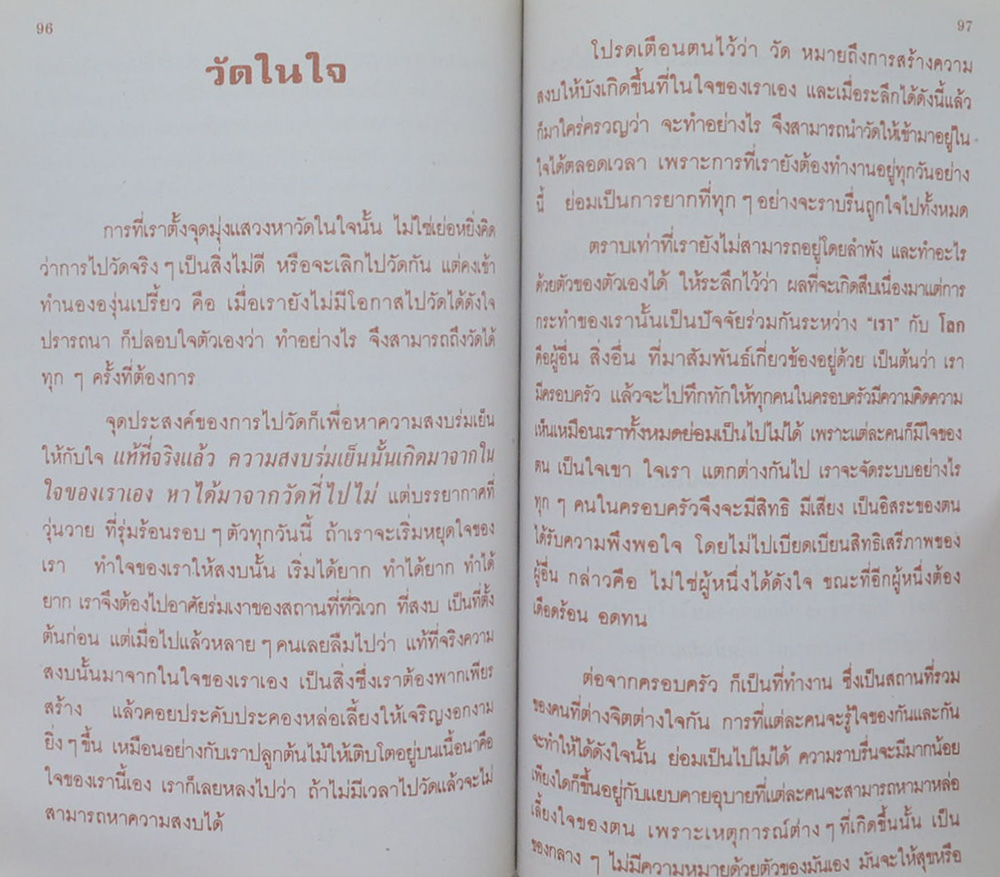 96
วัดในใจ
การที่เราตั้งจุดมุ่งแสวงหาวัดในใจนั้น ไม่ใช่เย่อหยิ่งคิด
ว่าการไปวัดจริง ๆ เป็นสิ่งไม่ดี หรือจะเลิกไปวัดกัน แต่คงเข้า
ทำนององุ่นเปรี้ยว คือ เมื่อเรายังไม่มีโอกาสไปวัดได้ดังใจ
ปรารถนา ก็ปลอบใจตัวเองว่า ทำอย่างไร จึงสามารถถึงวัดได้
ทุก ๆ ครั้งที่ต้องการ
จุดประสงค์ของการไปวัดก็เพื่อหาความสงบร่มเย็น
ให้กับใจ แท้ที่จริงแล้ว ความสงบร่มเย็นนั้นเกิดมาจากใน
ใจของเราเอง หาได้มาจากวัดที่ไปไม่ แต่บรรยากาศที่
วุ่นวาย ที่รุ่มร้อนรอบ ๆ ตัวทุกวันนี้ ถ้าเราจะเริ่มหยุดใจของ
เรา ทำใจของเราให้สงบนั้น เริ่มได้ยาก ทำได้ยาก ทำได้
ยาก เราจึงต้องไปอาศัยร่มเงาของสถานที่ที่วิเวก ที่สงบ เป็นที่ตั้ง
ต้นก่อน แต่เมื่อไปแล้วหลาย ๆ คนเลยลืมไปว่า แท้ที่จริงความ
สงบนั้นมาจากในใจของเราเอง เป็นสิ่งซึ่งเราต้องพากเพียร
สร้าง แล้วคอยประคับประคองหล่อเลี้ยงให้เจริญงอกงาม
ยิ่ง ๆ ขึ้น เหมือนอย่างกับเราปลูกต้นไม้ให้เติบโตอยู่บนเนื้อนาคือ
ใจของเรานี้เอง เราก็เลยหลงไปว่า ถ้าไม่มีเวลาไปวัดแล้วจะไม่
สามารถหาความสงบได้
97
โปรดเตือนตนไว้ว่า วัด หมายถึงการสร้างความ
สงบให้บังเกิดขึ้นที่ในใจของเราเอง และเมื่อระลึกได้ดังนี้แล้ว
ก็มาใคร่ครวญว่า จะทำอย่างไร จึงสามารถนำวัดให้เข้ามาอยู่ใน
ใจได้ตลอดเวลา เพราะการที่เรายังต้องทำงานอยู่ทุกวันอย่าง
นี้ ย่อมเป็นการยากที่ทุก ๆ อย่างจะราบรื่นถูกใจไปทั้งหมด
ตราบเท่าที่เรายังไม่สามารถอยู่โดยลำพัง และทำอะไร
ด้วยตัวของตัวเองได้ ให้ระลึกไว้ว่า ผลที่จะเกิดสืบเนื่องมาแต่การ
กระทำของเรานั้นเป็นปัจจัยร่วมกันระหว่าง "เรา" กับ โลก
คือผู้อื่น สิ่งอื่น ที่มาสัมพันธ์เกี่ยวข้องอยู่ด้วย เป็นต้นว่า เรา
มีครอบครัว แล้วจะไปทึกทักให้ทุกคนในครอบครัวมีความคิดความ
เห็นเหมือนเราทั้งหมดย่อมเป็นไปไม่ได้ เพราะแต่ละคนก็มีใจของ
ตน เป็นใจเขา ใจเรา แตกต่างกันไป เราจะจัดระบบอย่างไร
ทุก ๆ คนในครอบครัวจึงจะมีสิทธิ มีเสียง เป็นอิสระของตน
ได้รับความพึงพอใจ โดยไม่ไปเบียดเบียนสิทธิเสรีภาพของ
ผู้อื่น กล่าวคือ ไม่ใช่ผู้หนึ่งได้ดังใจ ขณะที่อีกผู้หนึ่งต้อง
เดือดร้อน อดทน
ต่อจากครอบครัว ก็เป็นที่ทำงาน ซึ่งเป็นสถานที่รวม
ของคนที่ต่างจิตต่างใจกัน การที่แต่ละคนจะรู้ใจของกันและกัน
จะทำให้ได้ดังใจนั้น ย่อมเป็นไปไม่ได้ ความราบรื่นจะมีมากน้อย
เพียงใดก็ขึ้นอยู่กับแยบคายอุบายที่แต่ละคนจะสามารถหามาหล่อ
เลี้ยงใจของตน เพราะเหตุการณ์ต่าง ๆ ที่เกิดขึ้นนั้น เป็น
ของกลาง ๆ ไม่มีความหมายด้วยตัวของมันเอง มันจะให้สุขหรือ